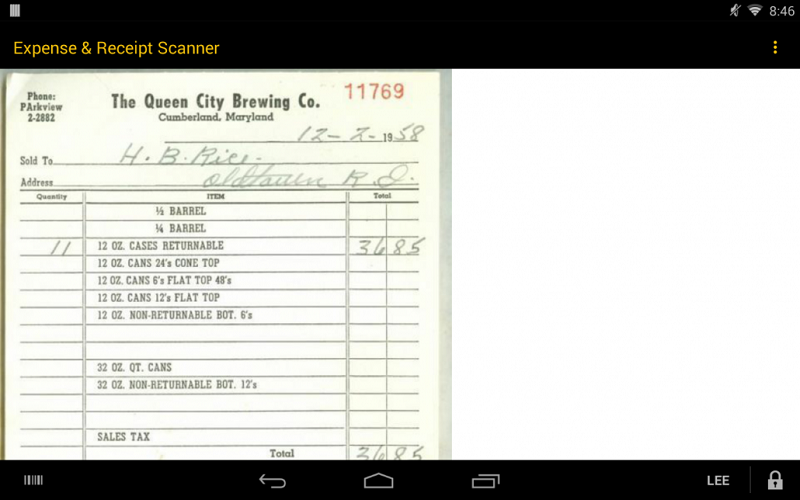 8:46
Expense & Receipt Scanner
Phone:
PArkview
2-2882
The Queen City Brewing Co.
11769
Cumberland, Maryland
12-2-1958
Sold To H. B. Rice.
Address Oldtown R. D.
Quantity ITEM Total
½ BARREL
¼ BARREL
11 12 OZ. CASES RETURNABLE 36 85
12 OZ. CANS 24's CONE TOP
12 OZ. CANS 6's FLAT TOP 48's
12 OZ. CANS 12's FLAT TOP
12 OZ. NON-RETURNABLE BOT. 6's
32 OZ. QT. CANS
32 OZ. NON-RETURNABLE BOT. 12's
SALES TAX
Total 36 85
LEE